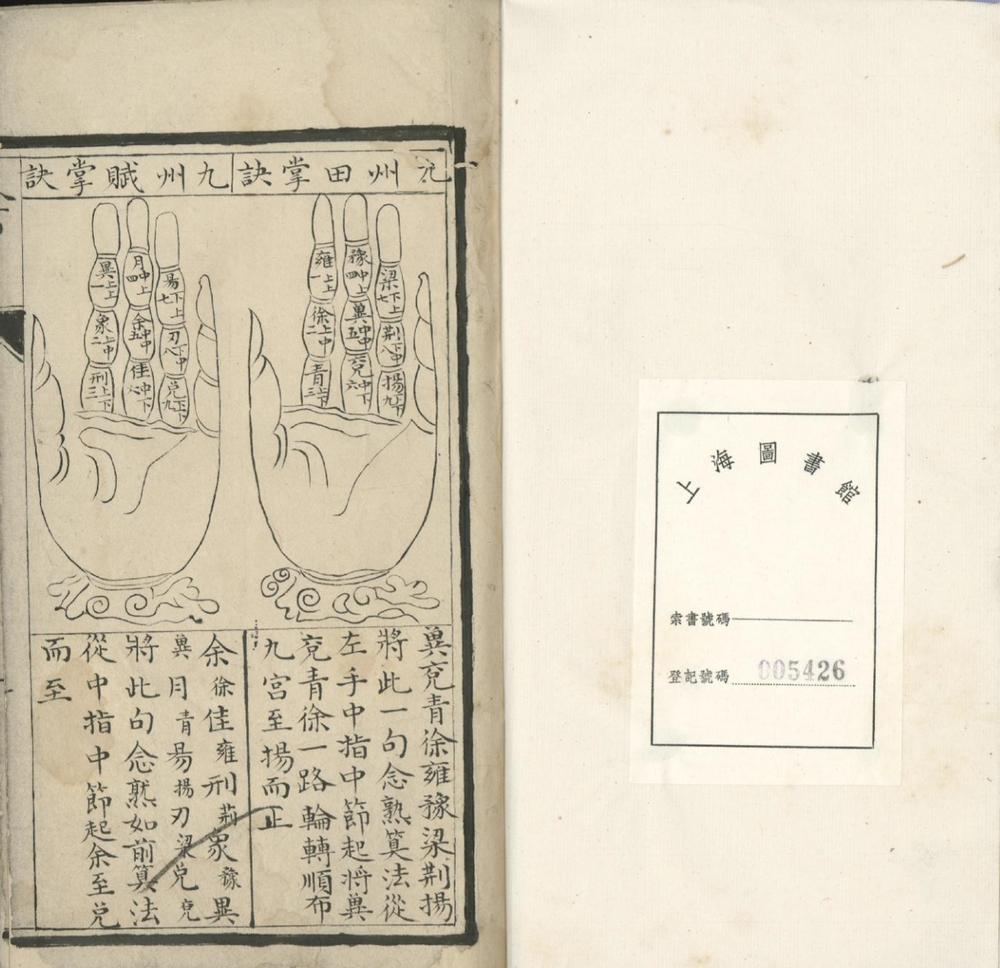 上海圖書館
索書號碼
登記號碼 005426
九州田掌訣
梁下上七
荆下中八
揚下下九
豫中上四
冀中中五
兗中下六
雍上上一
徐上中二
青上下三
冀兗青徐雍豫梁荆揚
將此一句念熟筭法從
左手中指中節起將冀
兗青徐一路輪轉順布
九宮至揚而正
九州賦掌訣
昜下上七
刃下中八
兌下下九
月中上四
余中中五
佳中下六
異上上一
象上中二
刑上下三
余徐佳雍刑荊象豫異
冀月青昜揚刃梁兌兗
將此句念熟如前筭法
從中指中節起余至兌
而至